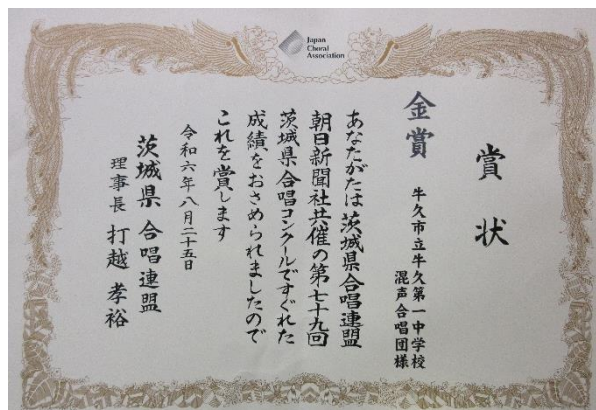 Japan
Choral
Association
賞状
金賞
牛久市立牛久第一中学校
混声合唱団様
あなたがたは茨城県合唱連盟
朝日新聞社共催の第七十九回
茨城県合唱コンクールですぐれた
成績をおさめられましたので
これを賞します
令和六年八月二十五日
茨城県合唱連盟
理事長 打越孝裕